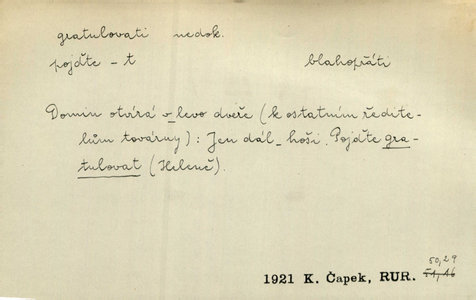 gratulovati nedok.
pojďte – t blahopřáti
Domin otvírá v_levo dveře (k ostatním ředite-
lům továrny): Jen dál_ hoši. Pojďte gra-
tulovat (Heleně).
50,29
1921 K. Čapek, RUR.